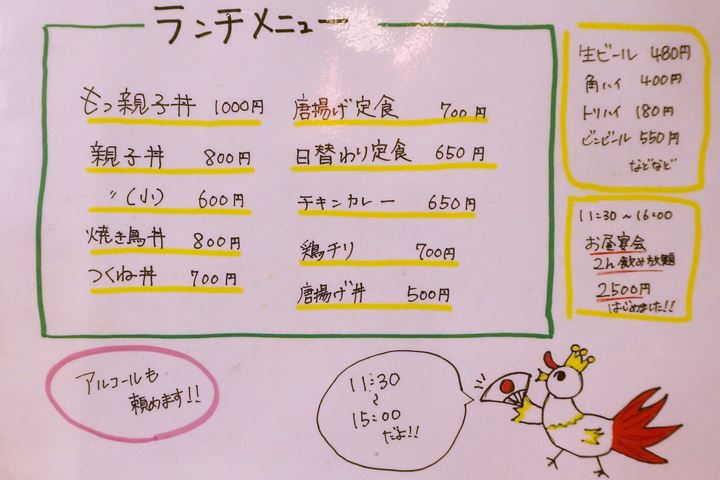 ランチメニュー
もつ親子丼 1000円
親子丼 800円
〃(小) 600円
焼き鳥丼 800円
つくね丼 700円
唐揚げ定食 700円
日替わり定食 650円
チキンカレー 650円
鶏チリ 700円
唐揚げ丼 500円
生ビール 480円
角ハイ 400円
トリハイ 180円
ビンビール 550円
などなど
11:30~16:00
お昼宴会
2h飲み放題
2500円
はじめました!!
アルコールも
頼めます!!
11:30
~
15:00
だよ!!